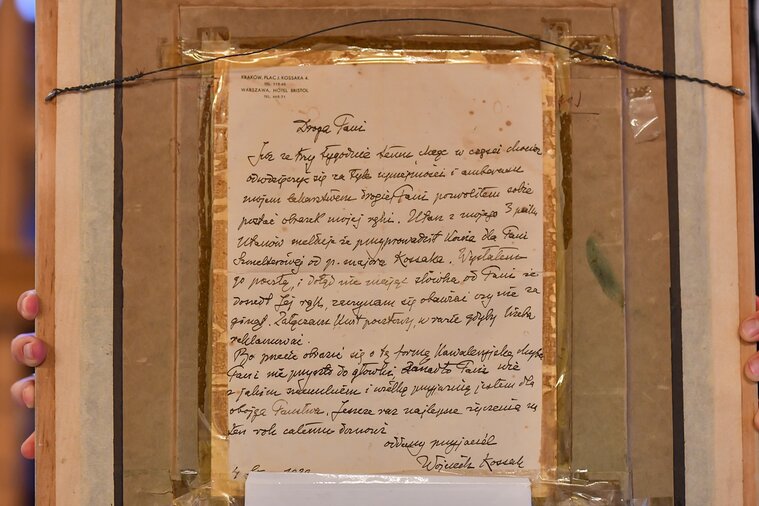 KRAKÓW, PLAC J. KOSSAKA 4.
TEL. 119-40.
WARSZAWA, HOTEL BRISTOL.
TEL. 665-31.
Droga Pani
Już ze trzy tygodnie temu, chcąc w części chociaż
odwdzięczyć się za tyle uprzejmości i
mojem lekarstwem drogiej Pani pozwoliłem sobie
posłać obrazek mojej ręki. Ułan z mojego 3 pułku
Ułanów melduje że przyprowadził konia dla Pani
Szmelterówej od p. majora Kossaka. Wysłałem
go pocztą, i dotąd nie mając słówka od Pani że
doszedł Jej rąk, zaczynam się obawiać czy nie za
ginął. Załączam kwit pocztowy, w razie gdyby trzeba
reklamować.
Bo przecie obrazić się o tę formę kawaleryjską chyba
Pani nie przyszło do główki, zanadto Pani wie
z jakim szacunkiem i wielką przyjaźnią jestem dla
obojga Państwa. Jeszcze raz najlepsze życzenia na
ten rok całemu domowi
oddany przyjaciel
Wojciech Kossak